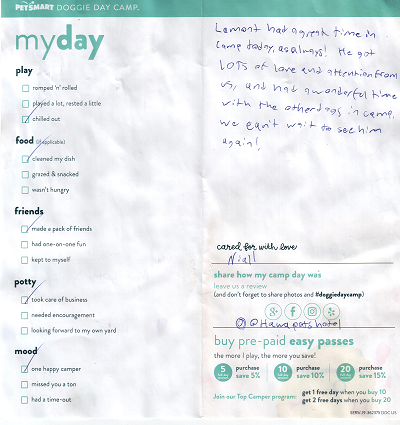 PETSMART DOGGIE DAY CAMP.
myday
play
romped 'n' rolled
played a lot, rested a little
chilled out
food (if applicable)
cleaned my dish
grazed & snacked
wasn't hungry
friends
made a pack of friends
had one-on-one fun
kept to myself
potty
took care of business
needed encouragement
looking forward to my own yard
mood
one happy camper
missed you a ton
had a time-out
Lamont had a great time in
camp today, as always! He got
LOTS of love and attention from
us, and had a wonderful time
with the other dogs in camp.
We can't wait to see him
again!
cared for with love
Niall
share how my camp day was
leave us a review
(and don't forget to share photos and #doggiedaycamp)
@Ottawapetshotel
buy pre-paid easy passes
the more I play, the more you save!
5 purchase save 5%
10 purchase save 10%
20 purchase save 15%
Join our Top Camper program: get 1 free day when you buy 10
get 2 free days when you buy 20